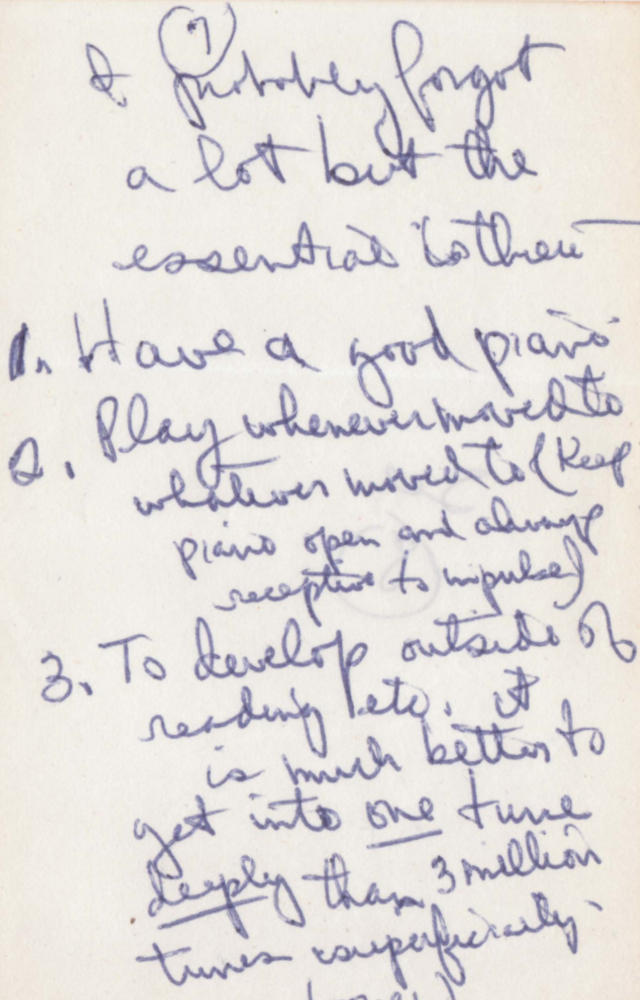 (7)
I probably forgot
a lot but the
essential is there —
1. Have a good piano
2. Play whenever moved to
whatever moved to (Keep
piano open and always
receptive to impulse)
3. To develop outside of
reading etc. it
is much better to
get into one tune
deeply than 3 million
tunes superficially.
(over)